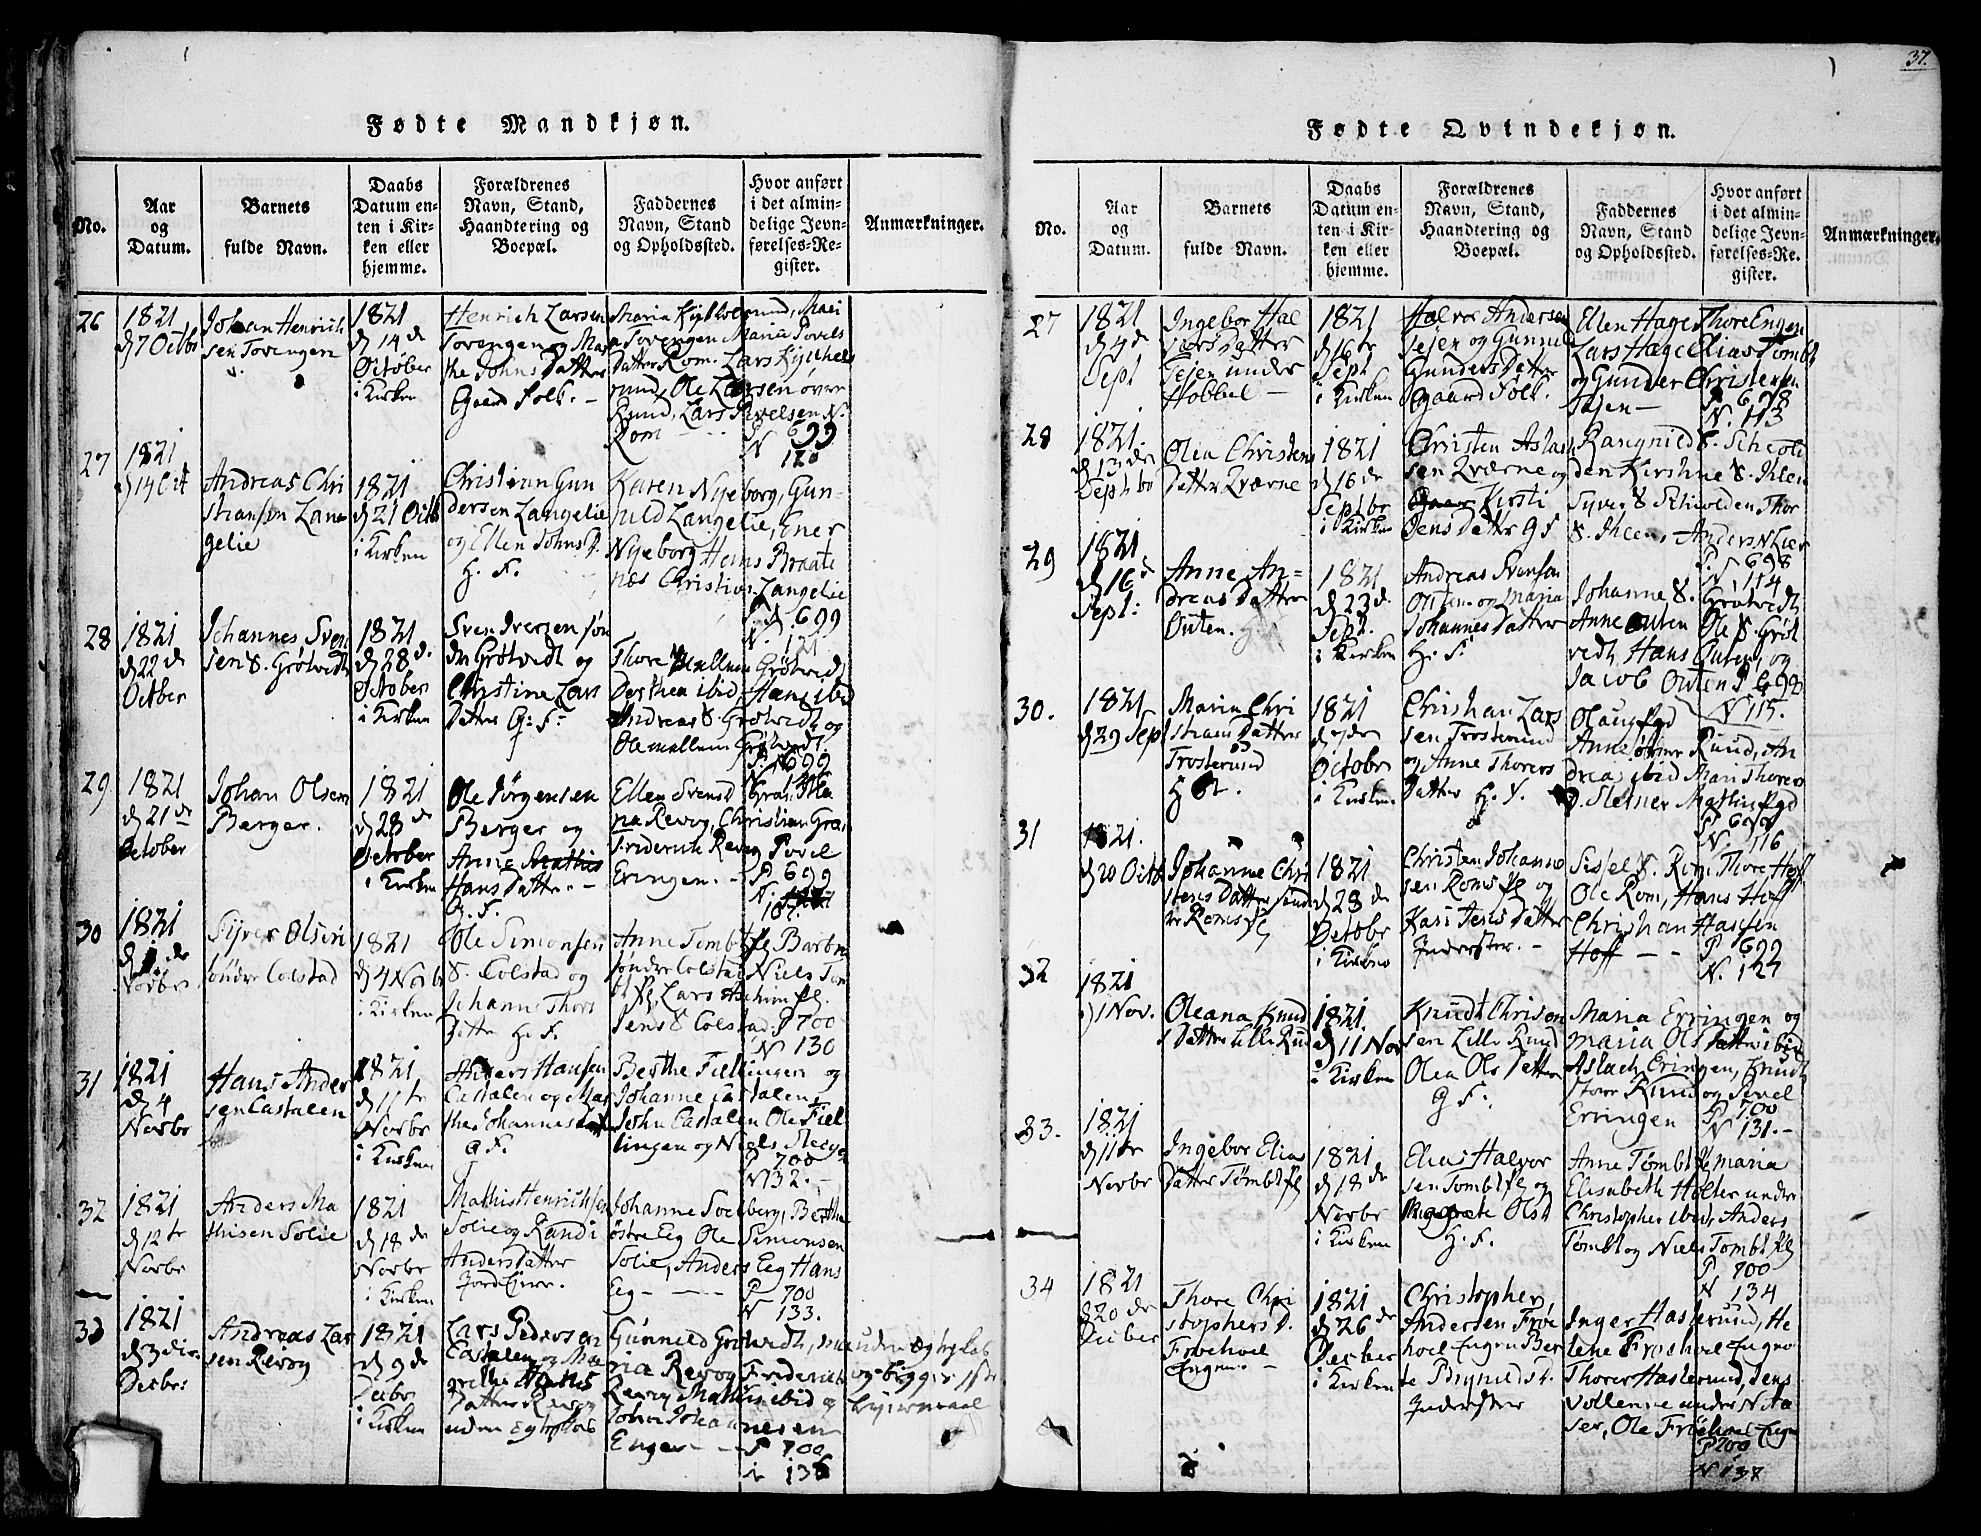 37.
Fødte Mandkjøn.
No.
Aar
og
Datum.
Barnets
fulde Navn.
Daabs
Datum en-
ten i Kir-
ken eller
hjemme.
Forældrenes
Navn, Stand,
Haandtering og
Boepæl.
Faddernes
Navn, Stand
og Opholdssted.
Hvor anført
i det almin-
delige Jevn-
førelses-Re-
gister.
Anmærkninger.
26
1821
d 7 Octbr
Johan Henrich
sen Tovengen
1821
d 14 de
October
i Kirken
Henrich Larsen
Tovengen og Mar
the Johns Datter
Gaard Folk. –
Maria Kykkelsrud, Mari
a Tovengen Maria Povels
Datter Rom. Lars Kykkels
rud, Ole Larsen øvre
Ruud, Lars Povelsen N.
Rom
P. 699
N 120
27
1821
d 14 Oct
Andreas Chri
stiansen Lan
gelie
1821
d 21 Octb
i Kirken
Christian Gun
dersen Langelie
og Ellen Johns D.
G. F.
Karen Nyeborg, Gun-
nild Langelie, Ener
Nyeborg Hans Braate
næs Christian Langelie
P. 699
N. 121
28
1821
d 22 de
October
Johannes Sven
sen S. Grøtvedt
1821
d 28 de
October
i Kirken
Sven Iversen søn
dre Grøtvedt og
Christine Lars
Datter G. F.
Thore Mellum Grøtvedt
Dorthea ibid, Hans ibid
Andreas S. Grøtvedt og
Ole mellum Grøtvedt
P. 699
N. 126
29
1821
d 21 de
October
Johan Olsen
Berger.
1821
d 28 de
October
i Kirken
Ole Jørgensen
Berger og
Anne
Hans Datter. –
G. F.
Ellen Svensd Gran, Ma
ria Revog, Christian Gran
Friderich Revog Povel
Eringen. –
P 699
N.
107.
30
1821
d 1 de
Novbr
Syver Olsen
søndre Colstad
1821
d 4 Novbr
i Kirken
Ole Simonsen
S. Colstad og
Johanne Thors
Datter H. F.
Anne Tombt
søndre Colstad Niels Tom
bt Lars
Jens S Colstad.
P 700
N 130
31
1821
d 4
Novbr
Hans Ander
sen Castalen
1821
d 11 te
Novbr
i Kirken
Anders Hansen
Castalen og Mar
the Johannes
G F.
Berthe Fiellingen og
Johanne Castalen,
John Castalen Ole Fiel
lingen og Niels
P 700
N 132. –
32
1821
d 12 te
Novbr
Anders Ma
thisen Solie
1821
d 18 de
Novbr
i Kirken
Mathis Henrichsen
Solie og Randi
Andersdatter
Johanne Solberg, Berthe
østre Eeg Ole Simonsen
Solie, Anders Eeg Hans
Eeg
P 700
N 133.
33
1821
d 3 die
Decbr:
Andreas Lar
sen Revog
1821
d 9 de
Decbr
i Kirken
Lars Pedersen
Castalen og Ma
grethe Hans
Datter Revog
uden Egteskab
Gunnild Grøtvedt, Ma
ria Revog Friderich
Revog Mathis ibid og
John Johannesen
Enger
P 700
N 136
uden Ægteskab
og begges 1ste
Leiermaal
Fødte Qvindekjøn.
No.
Aar
og
Datum.
Barnets
fulde Navn.
Daabs
Datum en-
ten i Kir-
ken eller
hjemme.
Forældrenes
Navn, Stand,
Haandtering og
Boepæl.
Faddernes
Navn, Stand
og Opholdssted.
Hvor anført
i det almin-
delige Jevn-
førelses-Re-
gister.
Anmærkninger.
27
1821
d 4 de
Sept
Ingebor Hal
vors Datter
Tejen under
Hobbel –
1821
d 16 te
Sept
i Kirken
Halvor Andersen
Tejen og Gunnild
Gunders Datter
Gaard Folk.
Ellen Hage Thore Engen
Lars Hage Elias Tombt
og Gunder Christensen
Tejen –
P 698
N. 113
28
1821
d 13 de
Septbr
Olea Christens
Datter Kværne
1821
d 16 de
Septbr
i Kirken
Christen Aslac
sen Kværne og
Kirsti
Jens Datter G F
Rangnild S. Schiol
den Kirstine S. Ihlen
Syver S Schiolden Thor
S. Ihlen, Anders N Lier
P. 698
N. 114
29
1821
d 16 de
Sept:
Anne An-
dreas Datter
Outen.
1821
d 23 de
Sept.
i Kirken
Andreas Svensen
Outen og Maria
Johannes Datter
H. F.
Johanne S. Grøtvedt
Anne Outen Ole S. Grøt
vedt, Hans Outen, og
Jacob Outen
P 698
N 115.
30.
1821
d 29 Sep
Maria Chri
stians Datter
Trosterud
1821
d 7 de
Octobr
i Kirken
Christian Lars
sen Trosterud
og Anne Thores
Datter H. F.
Anne øvre Ruud, An
dreas ibid Mari Thores
D. Sletner
P 699
N. 116
31
1821.
d 20 Octb
Johanne Chri
stens Datter
1821
d 28 de
Octobr
i Kirken
Christen Johanne
sen Roms og
Kari Jens Datter
Inderster. –
Sissel S. Rom, Thore Hoff
Ole Rom, Hans Hoff
Christian Hansen
Hoff – –
P 699
N. 127
32
1821
d 1 Nov.
Oleana Knud
s Datter Lille Rud
1821.
d 11 Nov
i Kirken
Knudt Chrisen
sen Lille Ruud
Olea Ols Datter
G F.
Maria Erringen og
Maria Ols Datter ibid
Aslach Eringen, Knudt
Store Ruud og Povel
Erringen
P 700
N 131. –
33.
1821
d 11 te
Novbr
Ingebor Elias
Datter Tømbt
1821
d 18 de
Novbr
i Kirken
Elias Halvor
sen Tombt og
Magrete Olsd
H. F.
Anne Tømbt Maria
Elisabeth Holter under
Christopher ibid, Anders
Tømbt og Niels Tombt
P 700
N 134
34
1821
d 20 de
Decber
Thore Chri
stophers D.
Froehoel
Engen. –
1821
d 26 de
Decber
i Kirken
Christopher
Andersen Froe
hoel Engen Ber
te Brynilds D.
Inderster
Inger Haslerud, He
lene Froshoel Engen
Thorer Haslerud, Jens
Vollene under N Aa
ser, Ole Froehoel Engen
P 700
N 137